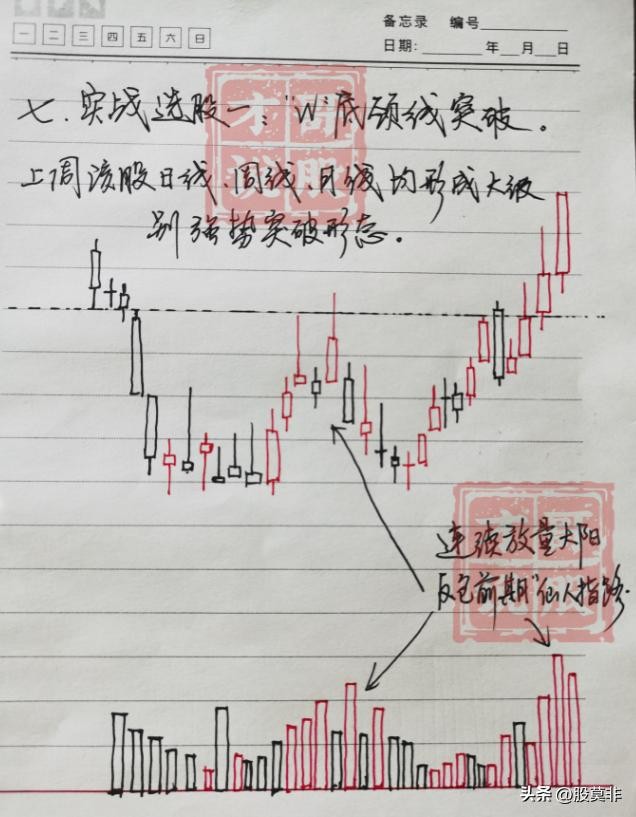 备忘录 编号
一 二 三 四 五 六 日
日期: 年 月 日
七、实战选股一："W"底颈线突破。
上周该股日线、周线、月线均形成大级
别强势突破形态。
连续放量大阳
反包前期"仙人指路.
头条 @股莫非